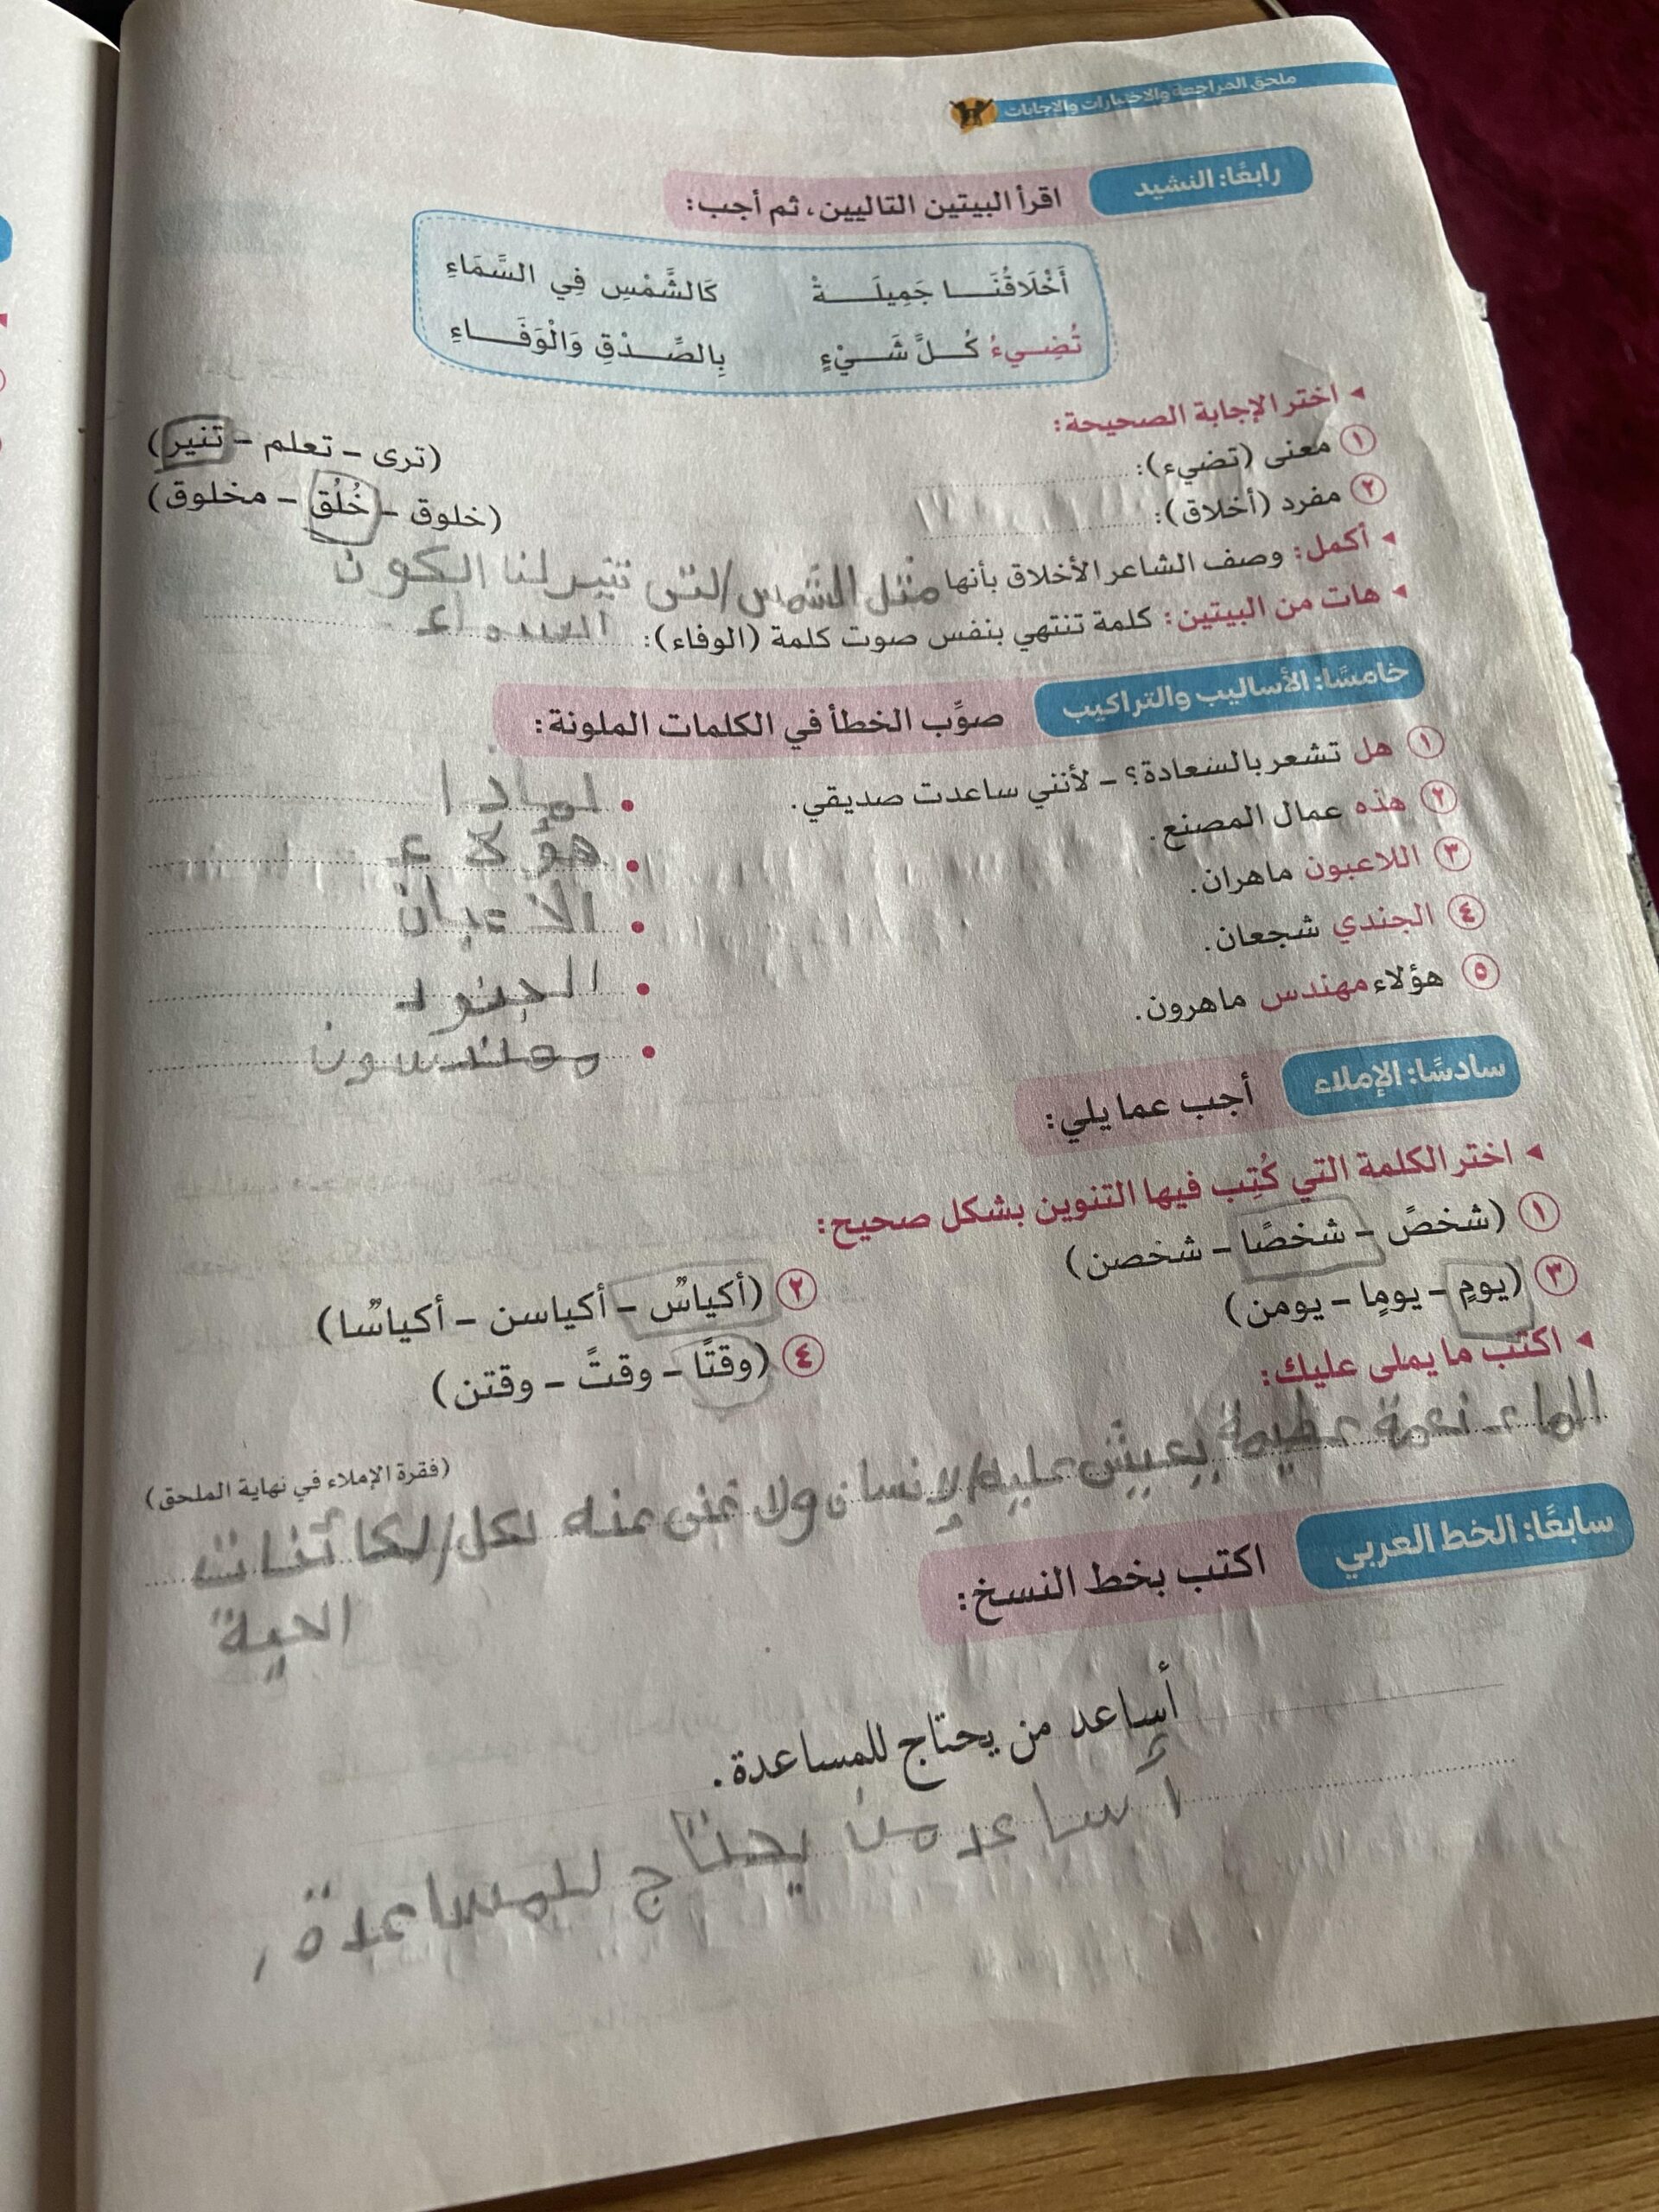 ملحق المراجعة والاختبارات والإجابات
رابعًا: النشيد اقرأ البيتين التاليين، ثم أجب:
أَخْلَاقُنَـــا جَمِيلَـــةْ كَالشَّمْسِ فِي السَّمَاءِ
تُضِـيءُ كُـلَّ شَـيْءٍ بِالصِّـدْقِ وَالْوَفَـاءِ
◂ اختر الإجابة الصحيحة:
١ معنى (تضيء): (ترى - تعلم - تنير)
٢ مفرد (أخلاق): (خلوق - خُلُق - مخلوق)
◂ أكمل: وصف الشاعر الأخلاق بأنها مثل الشمس التى تنير لنا الكون
◂ هات من البيتين: كلمة تنتهي بنفس صوت كلمة (الوفاء): السماء
خامسًا: الأساليب والتراكيب صوِّب الخطأ في الكلمات الملونة:
١ هل تشعر بالسعادة؟ - لأنني ساعدت صديقي. • لماذا
٢ هذه عمال المصنع. • هؤلاء
٣ اللاعبون ماهران. • الاعبان
٤ الجندي شجعان. • الجنود
٥ هؤلاء مهندس ماهرون. • مهندسون
سادسًا: الإملاء أجب عما يلي:
◂ اختر الكلمة التي كُتِب فيها التنوين بشكل صحيح:
١ (شخصً - شخصًا - شخصن) ٢ (أكياسٌ - أكياسن - أكياسٌا)
٣ (يومٍ - يومٍا - يومن) ٤ (وقتًا - وقتً - وقتن)
◂ اكتب ما يملى عليك:
الماء نعمة عظيمة يعيش عليه الإنسان ولا غنى عنه لكل الكائنات
(فقرة الإملاء في نهاية الملحق)
الحية
سابعًا: الخط العربي اكتب بخط النسخ:
أساعد من يحتاج للمساعدة.
أساعد من يحتاج للمساعدة.